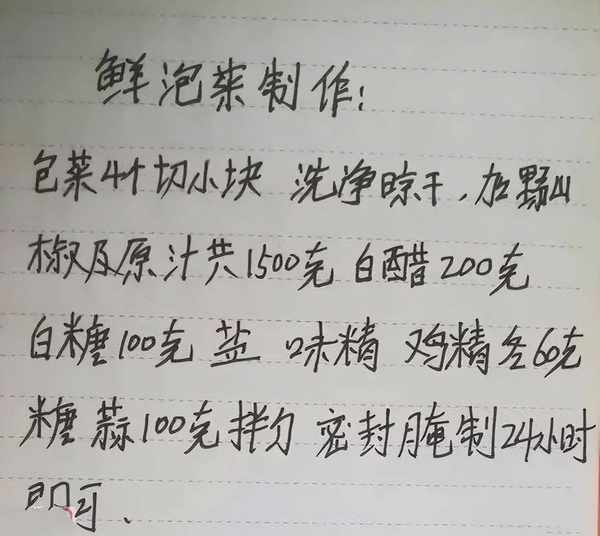 鲜泡菜制作:
包菜4斤切小块 洗净晾干,加野山
椒及原汁共1500克 白醋200克
白糖100克 盐 味精 鸡精各60克
糖蒜100克拌匀 密封腌制24小时
即可.